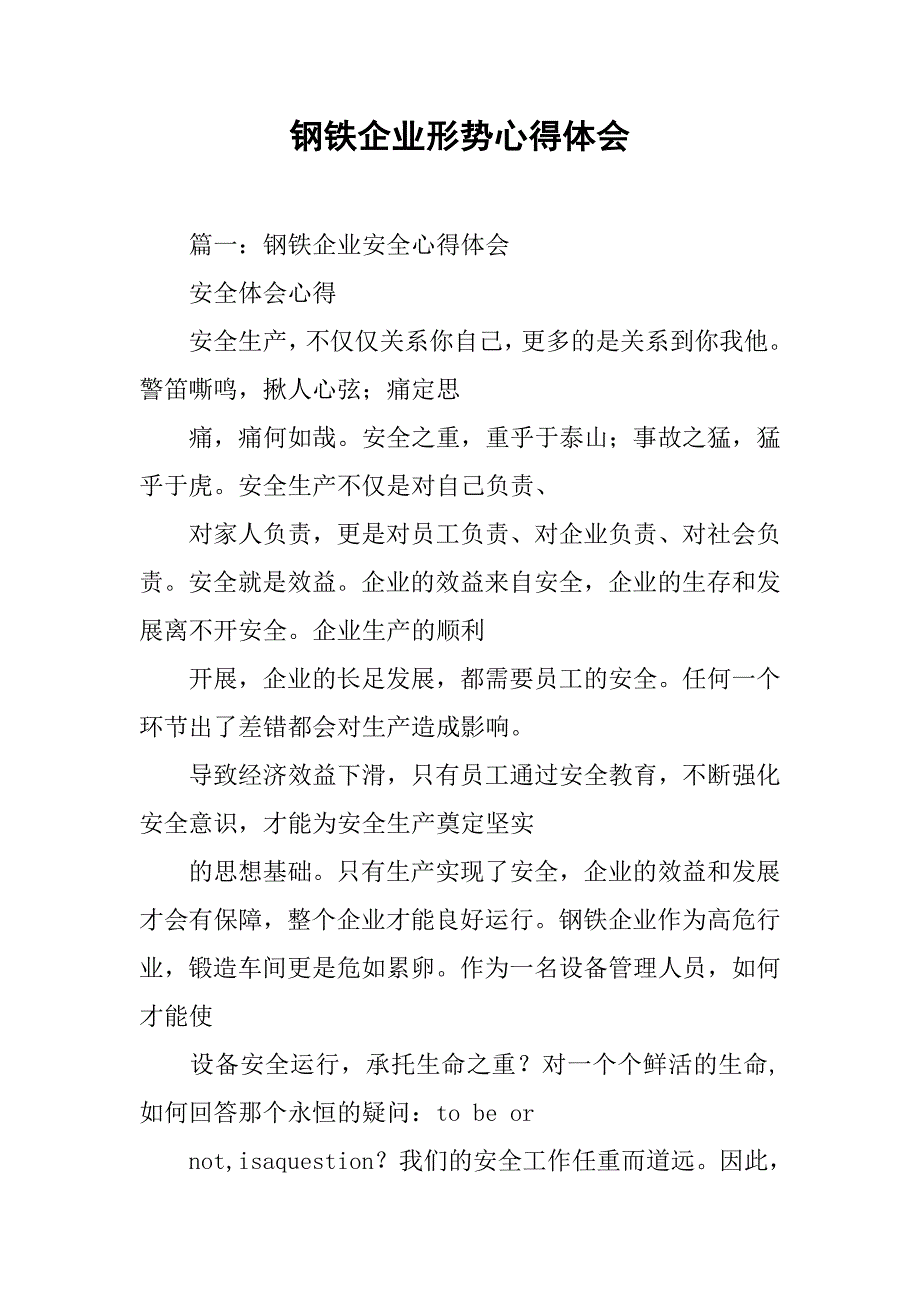 钢铁企业形势心得体会
篇一：钢铁企业安全心得体会
安全体会心得
安全生产，不仅仅关系你自己，更多的是关系到你我他。
警笛嘶鸣，揪人心弦；痛定思
痛，痛何如哉。安全之重，重乎于泰山；事故之猛，猛
乎于虎。安全生产不仅是对自己负责、
对家人负责，更是对员工负责、对企业负责、对社会负
责。安全就是效益。企业的效益来自安全，企业的生存和发
展离不开安全。企业生产的顺利
开展，企业的长足发展，都需要员工的安全。任何一个
环节出了差错都会对生产造成影响。
导致经济效益下滑，只有员工通过安全教育，不断强化
安全意识，才能为安全生产奠定坚实
的思想基础。只有生产实现了安全，企业的效益和发展
才会有保障，整个企业才能良好运行。钢铁企业作为高危行
业，锻造车间更是危如累卵。作为一名设备管理人员，如何
才能使
设备安全运行，承托生命之重？对一个个鲜活的生命，
如何回答那个永恒的疑问：to be or
not,isaquestion？我们的安全工作任重而道远。因此，